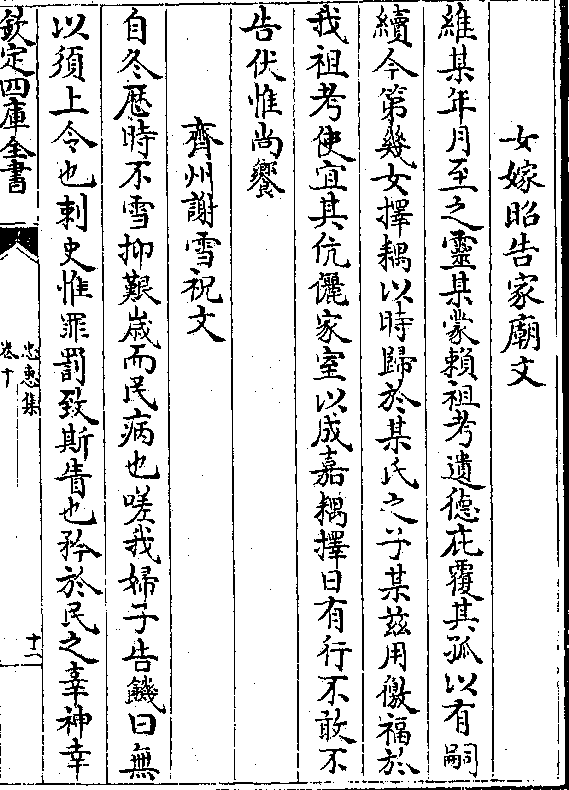 女嫁昭告家廟文
維某年月至之靈某蒙賴祖考遺德庇覆其孤以有嗣
續今第幾女擇耦以時歸於某氏之子某兹用徼福於
我祖考使宜其伉儷家室以成嘉耦擇日有行不敢不
告伏惟尚饗
齊州謝雪祝文
自冬歴時不雪抑艱歳而民病也嗟我婦子告饑曰無
以須上令也刺史惟罪罰致斯眚也矜於民之辜神幸
欽定四庫全書
忠惠集
卷十
十二